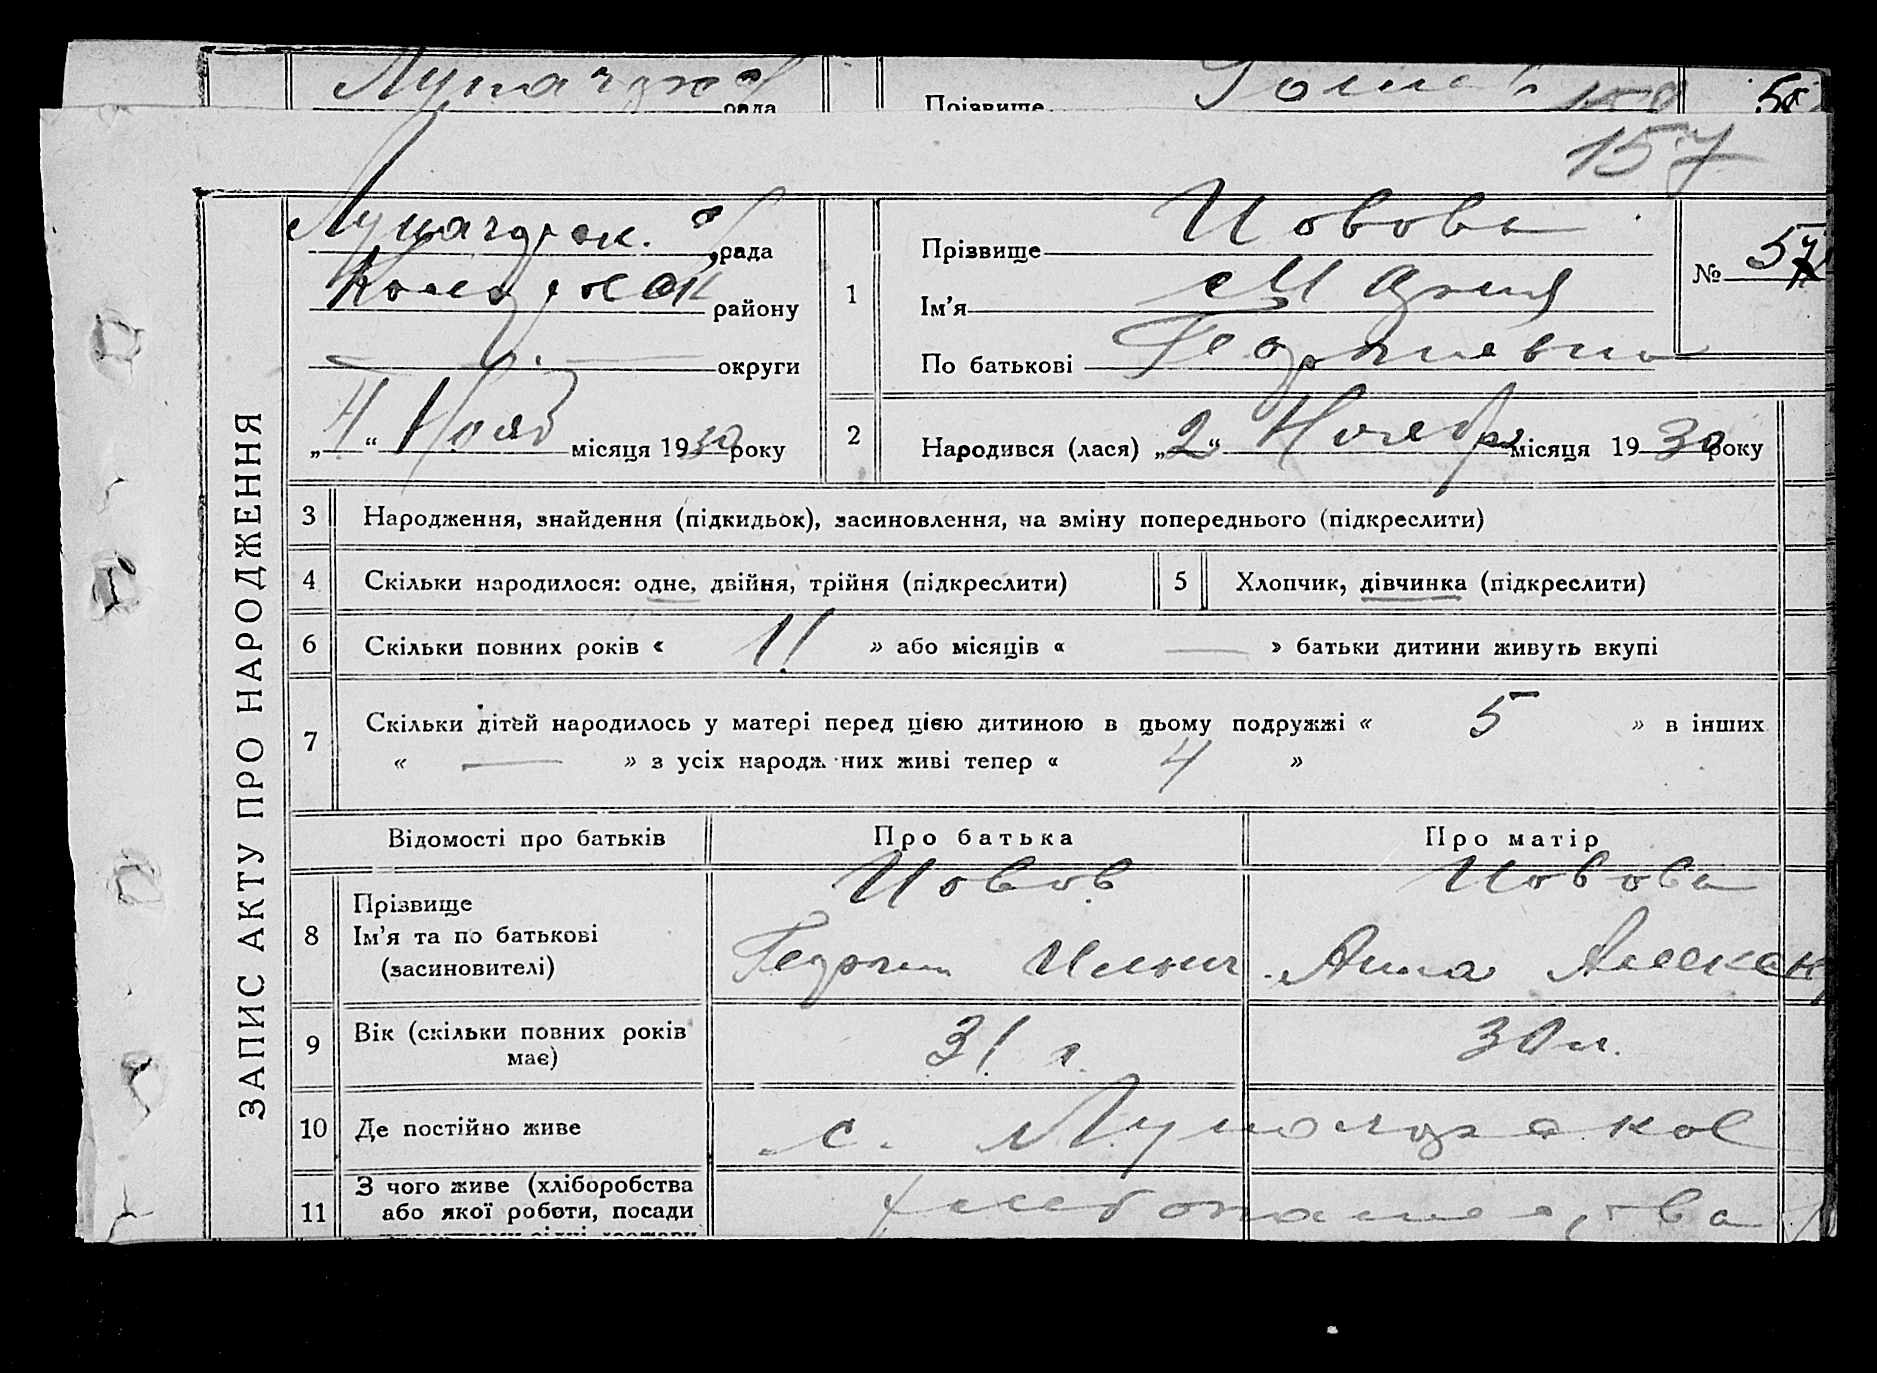 рада
Прізвище
157
рада
району
округи
„4“ Нояб місяця 1930 року
1
Прізвище Иовова
Ім'я Мария
По батькові Георгиевна
№ 57
2
Народився (лася) „2“ Ноября місяця 1930 року
ЗАПИС АКТУ ПРО НАРОДЖЕННЯ
3 Народження, знайдення (підкидьок), засиновлення, на зміну попереднього (підкреслити)
4 Скільки народилося: одне, двійня, трійня (підкреслити)
5 Хлопчик, дівчинка (підкреслити)
6 Скільки повних років « 11 » або місяців « — » батьки дитини живуть вкупі
7 Скільки дітей народилось у матері перед цією дитиною в цьому подружжі « 5 » в інших
« — » з усіх народж них живі тепер « 4 »
Відомості про батьків
Про батька
Про матір
8
Прізвище
Ім'я та по батькові
(засиновителі)
Иовов
Георгий Ильич
Иовова
Анна Алексан
9
Вік (скільки повних років
має)
31 г.
30 л.
10 Де постійно живе
с.
11
З чого живе (хліборобства
або якої роботи, посади
хлебопашества